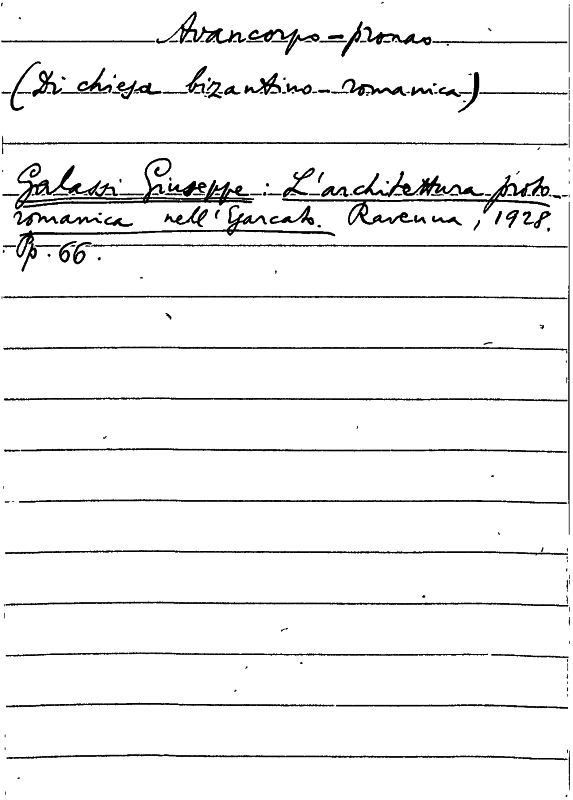 Avancorpo-pronao.
(Di chiesa bizantino-romanica)
Galassi Giuseppe: L'architettura proto-
romanica nell'Esarcato. Ravenna, 1928.
Pp. 66.